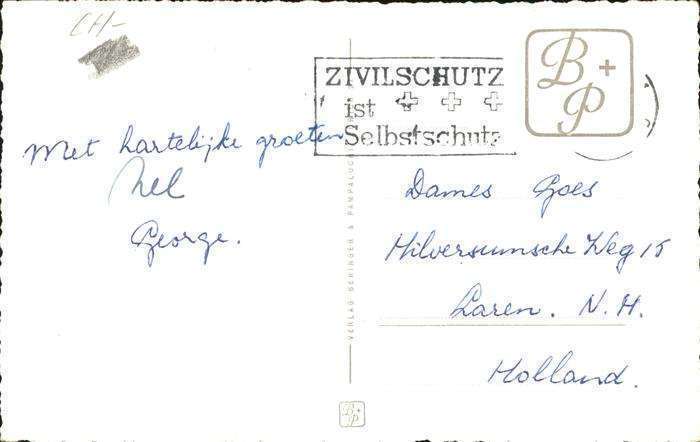 CH-
ZIVILSCHUTZ
ist
Selbstschutz
B+
P
Met hartelijke groeten
Nel
George.
VERLAG BERINGER & PAMPALUCHI
Dames Goes
Hilversumsche Weg 15
Laren. N.H.
Holland.
B+
P